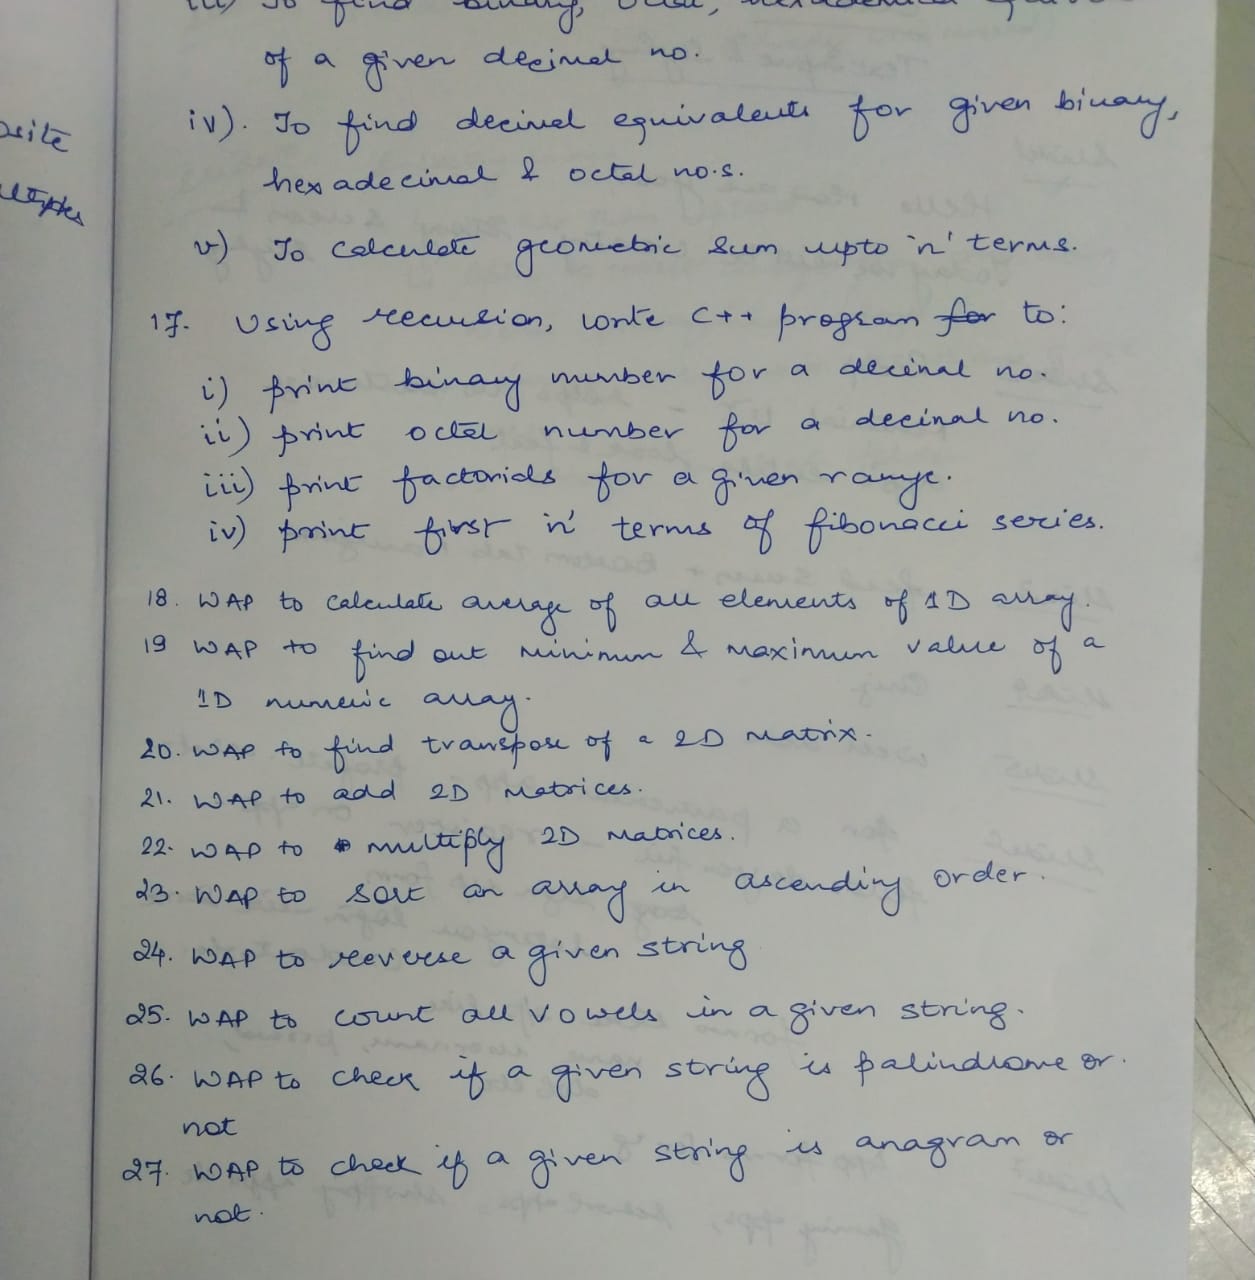 iii) To find binary, octal, hexadecimal
of a given decimal no.
iv). To find decimal equivalents for given binary,
hexadecimal & octal no.s.
v) To calculate geometric sum upto 'n' terms.
17. Using recursion, write C++ program for to:
i) print binary number for a decimal no.
ii) print octal number for a decimal no.
iii) print factorials for a given range.
iv) print first 'n' terms of fibonacci series.
18. WAP to calculate average of all elements of 1D array.
19 WAP to find out minimum & maximum value of a
1D numeric array.
20. WAP to find transpose of a 2D matrix.
21. WAP to add 2D matrices.
22. WAP to multiply 2D matrices.
23. WAP to sort an array in ascending order.
24. WAP to reverse a given string
25. WAP to count all vowels in a given string.
26. WAP to check if a given string is palindrome or.
not
27. WAP to check if a given string is anagram or
not.